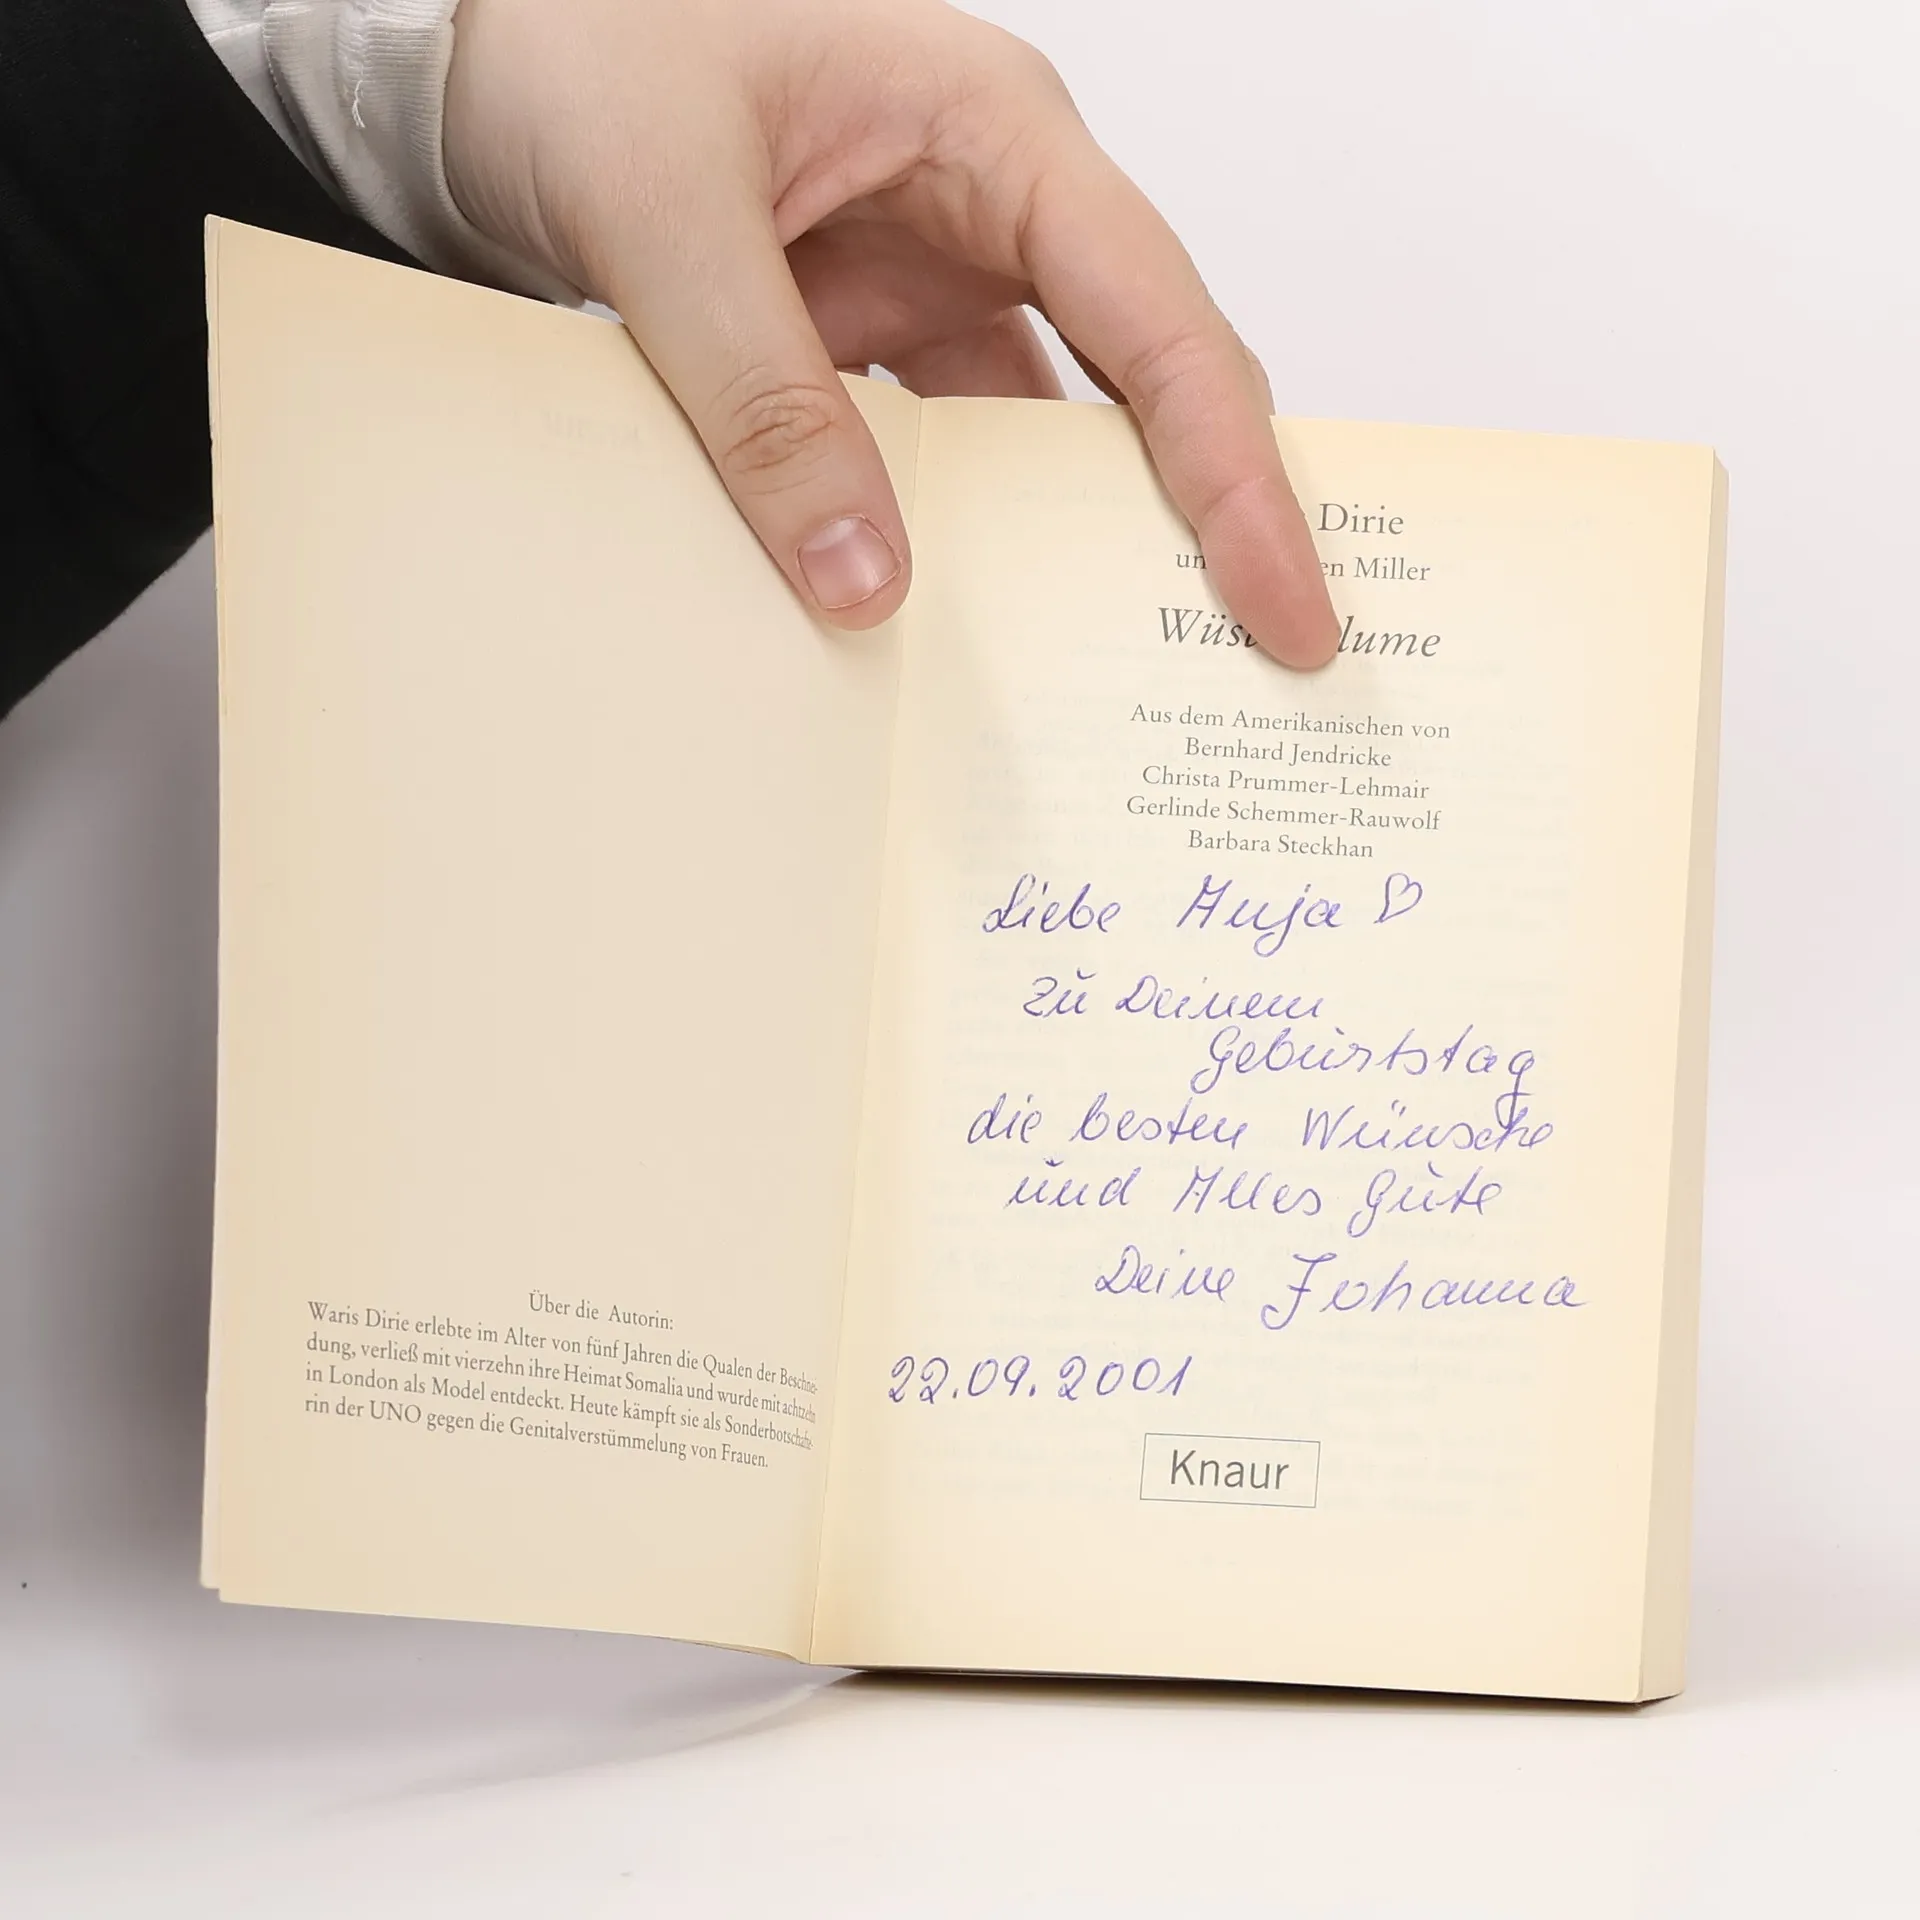 Über die Autorin:
Waris Dirie erlebte im Alter von fünf Jahren die Qualen der Beschnei-
dung, verließ mit vierzehn ihre Heimat Somalia und wurde mit achtzehn
in London als Model entdeckt. Heute kämpft sie als Sonderbotschafte-
rin der UNO gegen die Genitalverstümmelung von Frauen.
Dirie
Miller
Aus dem Amerikanischen von
Bernhard Jendricke
Christa Prummer-Lehmair
Gerlinde Schemmer-Rauwolf
Barbara Steckhan
Liebe Anja ♡
zu Deinem
Geburtstag
die besten Wünsche
und Alles Gute
Deine Johanna
22.09.2001
Knaur